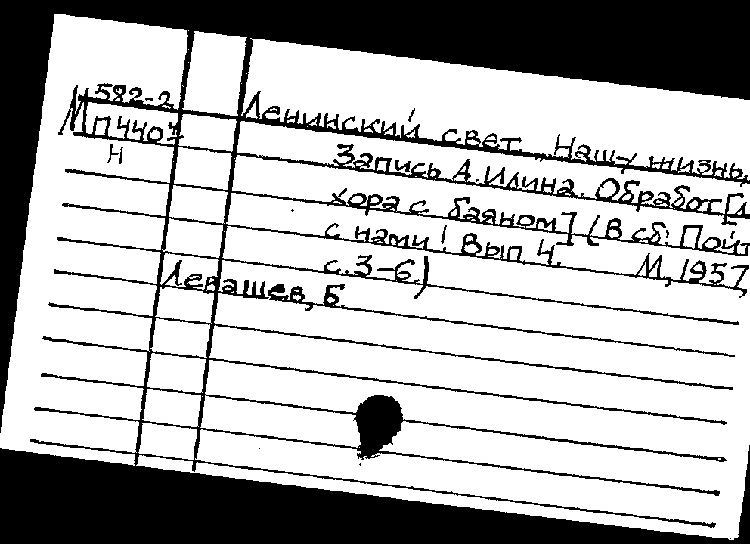 М 582-2
П4407
Н
Ленинский свет. „Нашу жизнь,
Запись А. Илина. Обработ[
хора с баяном] (В сб: Пойт
с нами! Вып 4. М, 1957,
с. 3-6.)
Левашев, Б.